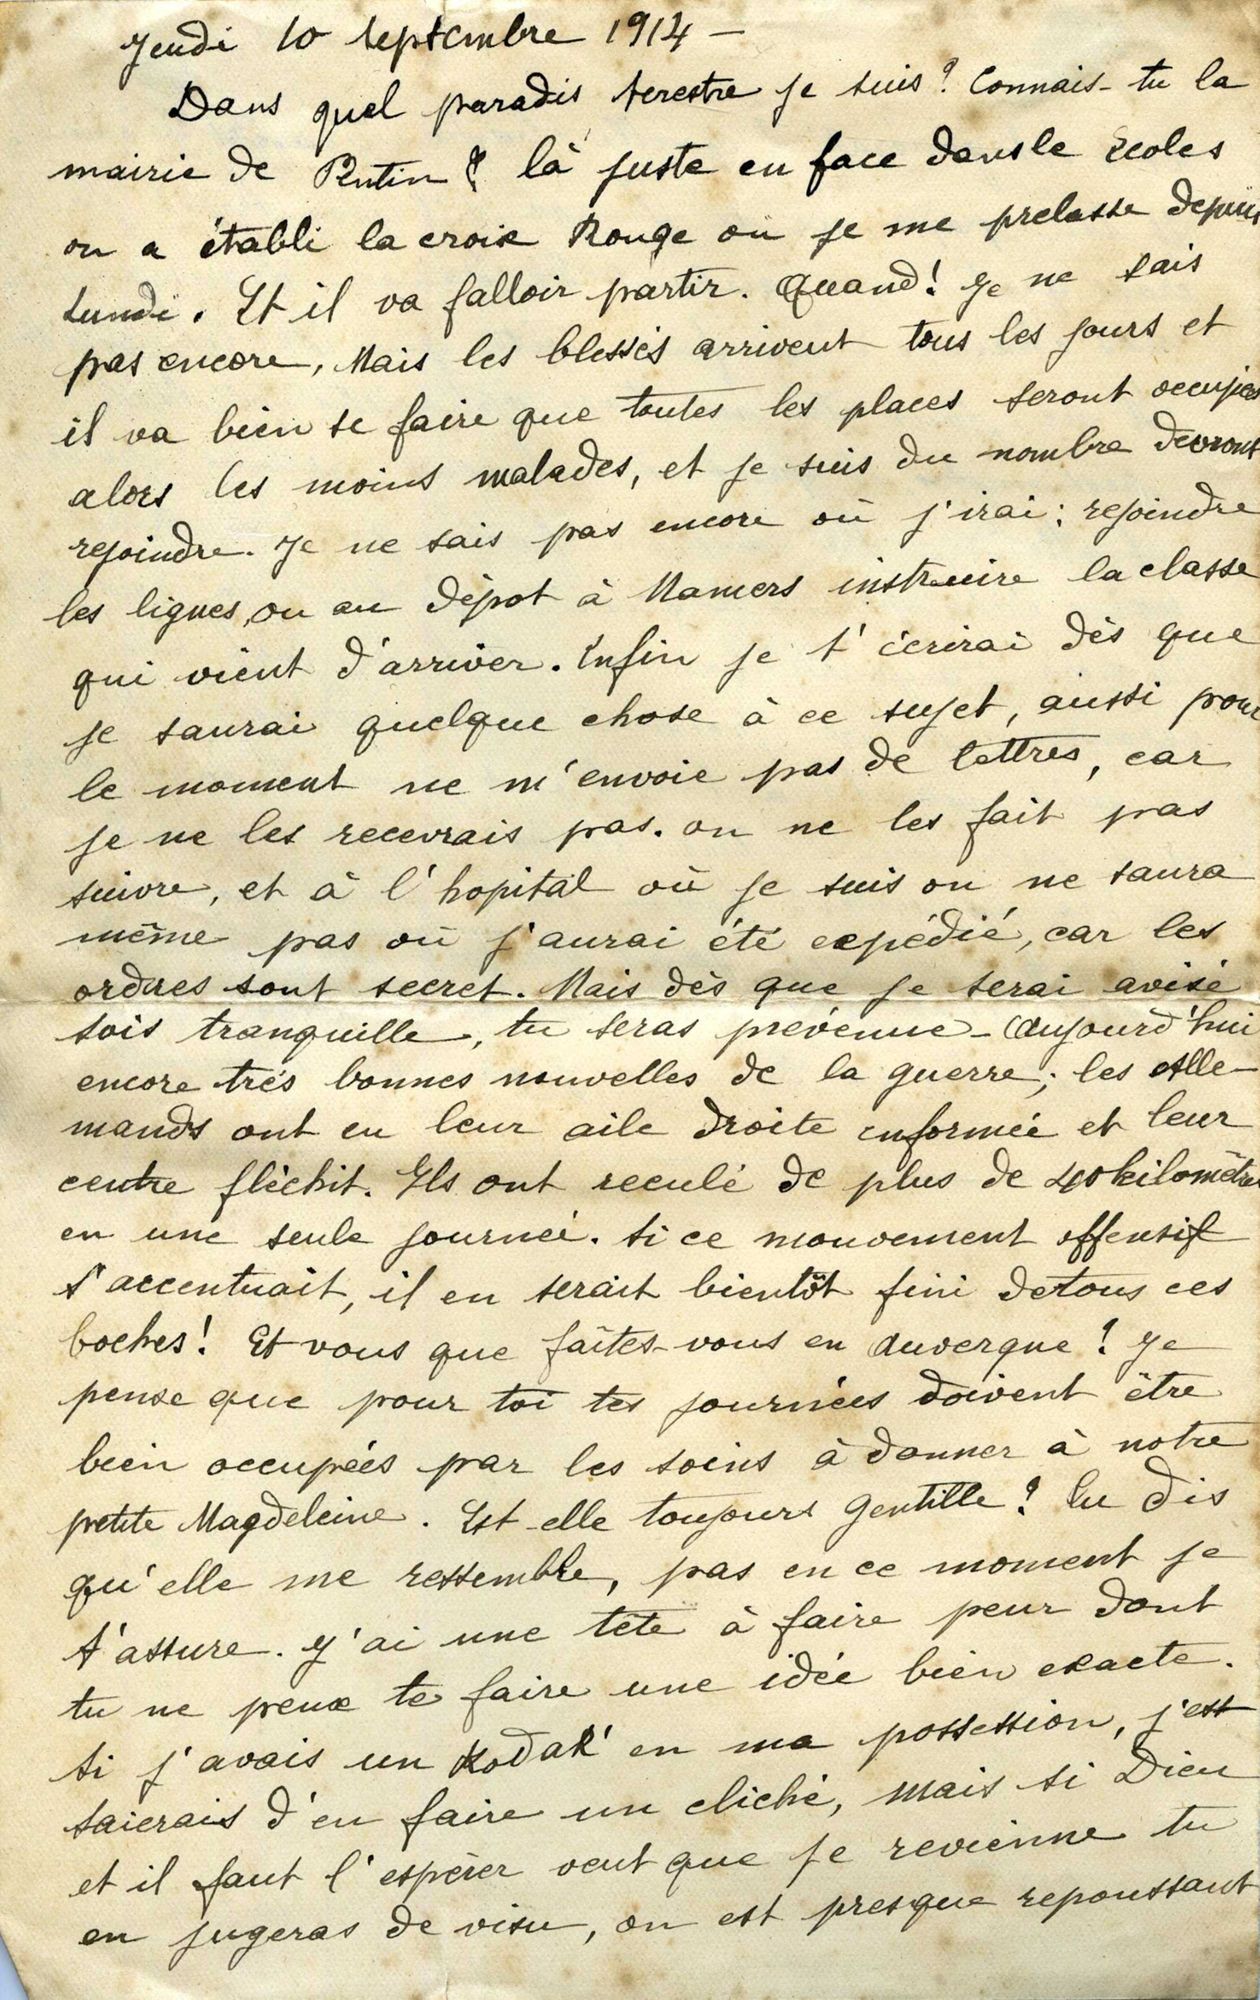 Jeudi 10 Septembre 1914 –
Dans quel paradis terestre je suis ? Connais-tu la
mairie de Pentin ? là juste en face dans le écoles
on a établi la croix Rouge où je me prelasse depuis
Lundi. Et il va falloir partir. Quand ! Je ne sais
pas encore, Mais les blessés arrivent tous les jours et
il va bien se faire que toutes les places seront occupées
alors les moins malades, et je suis du nombre devront
rejoindre. Je ne sais pas encore où j'irai : rejoindre
les lignes, ou au dépot à Mamers instruire la classe
qui vient d'arriver. Enfin je t'écrirai dès que
je saurai quelque chose à ce sujet, aussi pour
le moment ne m'envoie pas de lettres, car
je ne les recevrais pas. on ne les fait pas
suivre, et à l'hopital où je suis on ne saura
même pas où j'aurai été expédié, car les
ordres sont secret. Mais dès que je serai avisé
sois tranquille, tu seras prévenue – Aujourd'hui
encore très bonnes nouvelles de la guerre ; les Alle-
mands ont eu leur aile droite enformée et leur
centre fléchit. Ils ont reculé de plus de 40 kilomètres
en une seule journée. Si ce mouvement offensif
s'accentuait, il en serait bientôt fini de tous ces
boches ! Et vous que faîtes-vous en Auvergne ? Je
pense que pour toi tes journées doivent être
bien occupées par les soins à donner à notre
petite Magdeleine. Est-elle toujours gentille ? Tu dis
qu'elle me ressemble, pas en ce moment je
t'assure. J'ai une tête à faire peur dont
tu ne peux te faire une idée bien exacte.
Si j'avais un Kodak en ma possession, j'es-
saierais d'en faire un cliché, Mais si Dieu
et il faut l'espérer veut que je revienne tu
en jugeras de visu, on est presque repoussant